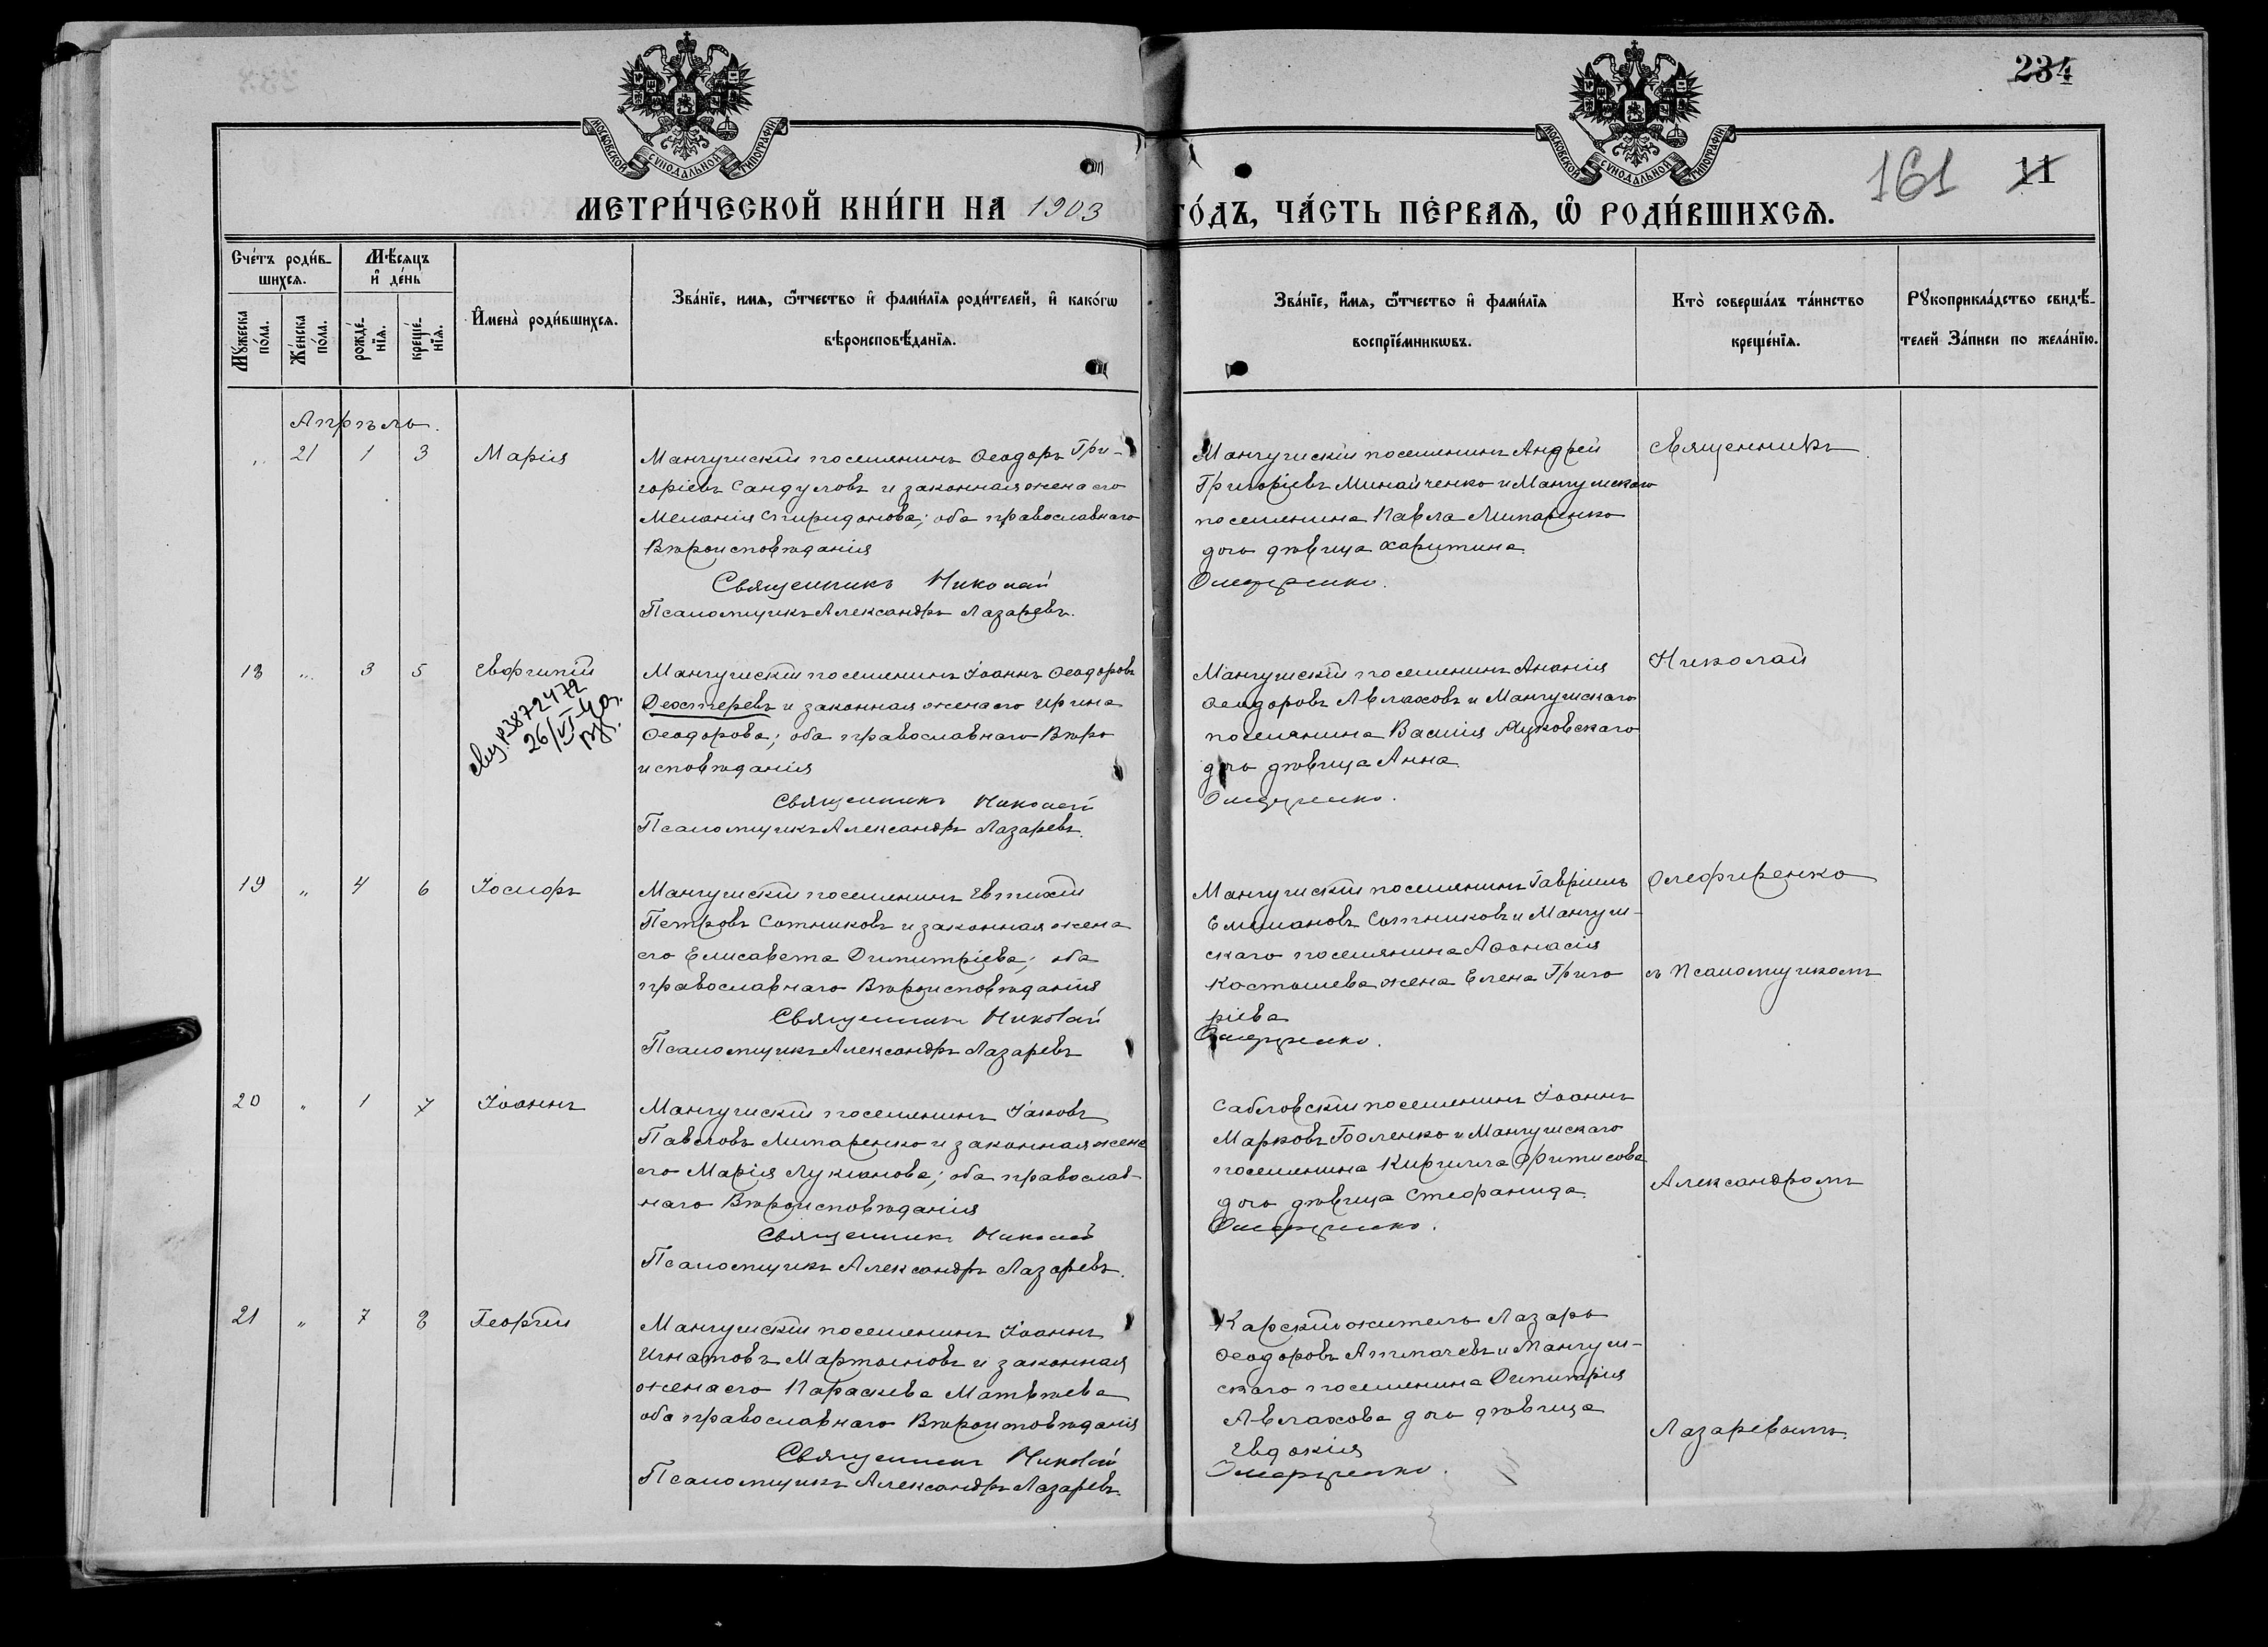 234
161 11
МОСКОВСКОЙ СѴНОДАЛЬНОЙ ТИПОГРАФІИ
МОСКОВСКОЙ СѴНОДАЛЬНОЙ ТИПОГРАФІИ
МЕТРИ́ЧЕСКОЙ КНИ́ГИ НА 1903 ГО́ДЪ, ЧА́СТЬ ПЕ́РВАѦ, Ѡ҆ РОДИ́ВШИХСѦ.
Сче́тъ роди́в-
шихсѧ.
Мꙋ́жеска по́ла.
Же́нска по́ла.
Мѣ́сѧцъ
и҆ де́нь
рожде́-
нїѧ.
креще́-
нїѧ.
И҆мена̀ роди́вшихсѧ.
Зва́нїе, имѧ, ѻ҆́тчество и҆ фами́лїѧ роди́телей, и҆ како́гѡ
вѣроисповѣ́данїѧ.
Зва́нїе, и҆́мѧ, ѻ҆́тчество и҆ фами́лїѧ
воспрїе́мникѡвъ.
Кто̀ соверша́лъ та́инство
креще́нїѧ.
Рꙋкоприкла́дство свидѣ́-
телей За́писи по жела́нїю.
Апрѣль.
" 21 1 3 Марія
Мангушскій поселянинъ Ѳеодоръ Гри-
горіевъ Сандуловъ и законная жена его
Меланія Спиридонова; оба православнаго
Вѣроисповѣданія
Священникъ Николай
Псаломщикъ Александръ Лазаревъ.
Мангушскій поселянинъ Андрей
Григоріевъ Минайченко и Мангушскаго
поселянина Павла Липаренко
дочь дѣвица Харитина
Олефиренко.
Священникъ
18 " 3 5 Евфимій
Мангушскій поселянинъ Іоаннъ Ѳеодоровъ
Феостеревъ и законная жена его Ирина
Ѳеодорова; оба православнаго Вѣро
исповѣданія
Священникъ Николай
Псаломщикъ Александръ Лазаревъ.
26/VI-40г.
Мангушскій поселянинъ Ананія
Ѳеодоровъ Авлаховъ и Мангушскаго
поселянина Василія Яцковскаго
дочь дѣвица Анна
Олефиренко.
Николай
19 " 4 6 Іосифъ
Мангушскій поселянинъ Евтихій
Петровъ Сотниковъ и законная жена
его Елисавета Димитріева; оба
православнаго Вѣроисповѣданія
Священникъ Николай
Псаломщикъ Александръ Лазаревъ
Мангушскій поселянинъ Гавріилъ
Емельяновъ Сотниковъ и Мангуш-
скаго поселянина Аѳанасія
Костышева жена Елена Григо
ріева
Олефиренко.
Олефиренко
съ Псаломщикомъ
20 " 1 7 Іоаннъ
Мангушскій поселянинъ Іаковъ
Павловъ Липаренко и законная жена
его Марія Лукіанова; оба православ-
наго Вѣроисповѣданія
Священникъ Николай
Псаломщикъ Александръ Лазаревъ.
Сабловскій поселянинъ Іоаннъ
Марковъ Боленко и Мангушскаго
поселянина Кирилла Фитисова
дочь дѣвица Стефанида
Олефиренко.
Александромъ
21 " 7 8 Георгій
Мангушскій поселянинъ Іоаннъ
Игнатовъ Мартыновъ и законная
жена его Параскева Матѳѣева
оба православнаго Вѣроисповѣданія
Священникъ Николай
Псаломщикъ Александръ Лазаревъ.
Карскій житель Лазарь
Ѳеодоровъ и Мангуш-
скаго поселянина Димитрія
Авлахова дочь дѣвица
Евдокія
Олефиренко.
Лазаревымъ.